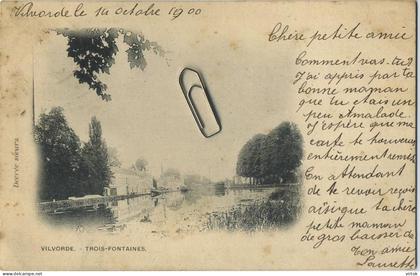 Vilvorde le 14 Octobre 1900
Chère petite amie
Comment vas-tu?
J'ai appris par ta
bonne maman
que tu étais un
peu malade.
J'espère que ma
carte te trouvera
entièrement remise
En attendant
de te revoir reçois
ainsi que ta chère
petite maman
de gros baiser de
ton amie
Laurette
Decrée sœurs
VILVORDE. - TROIS-FONTAINES.